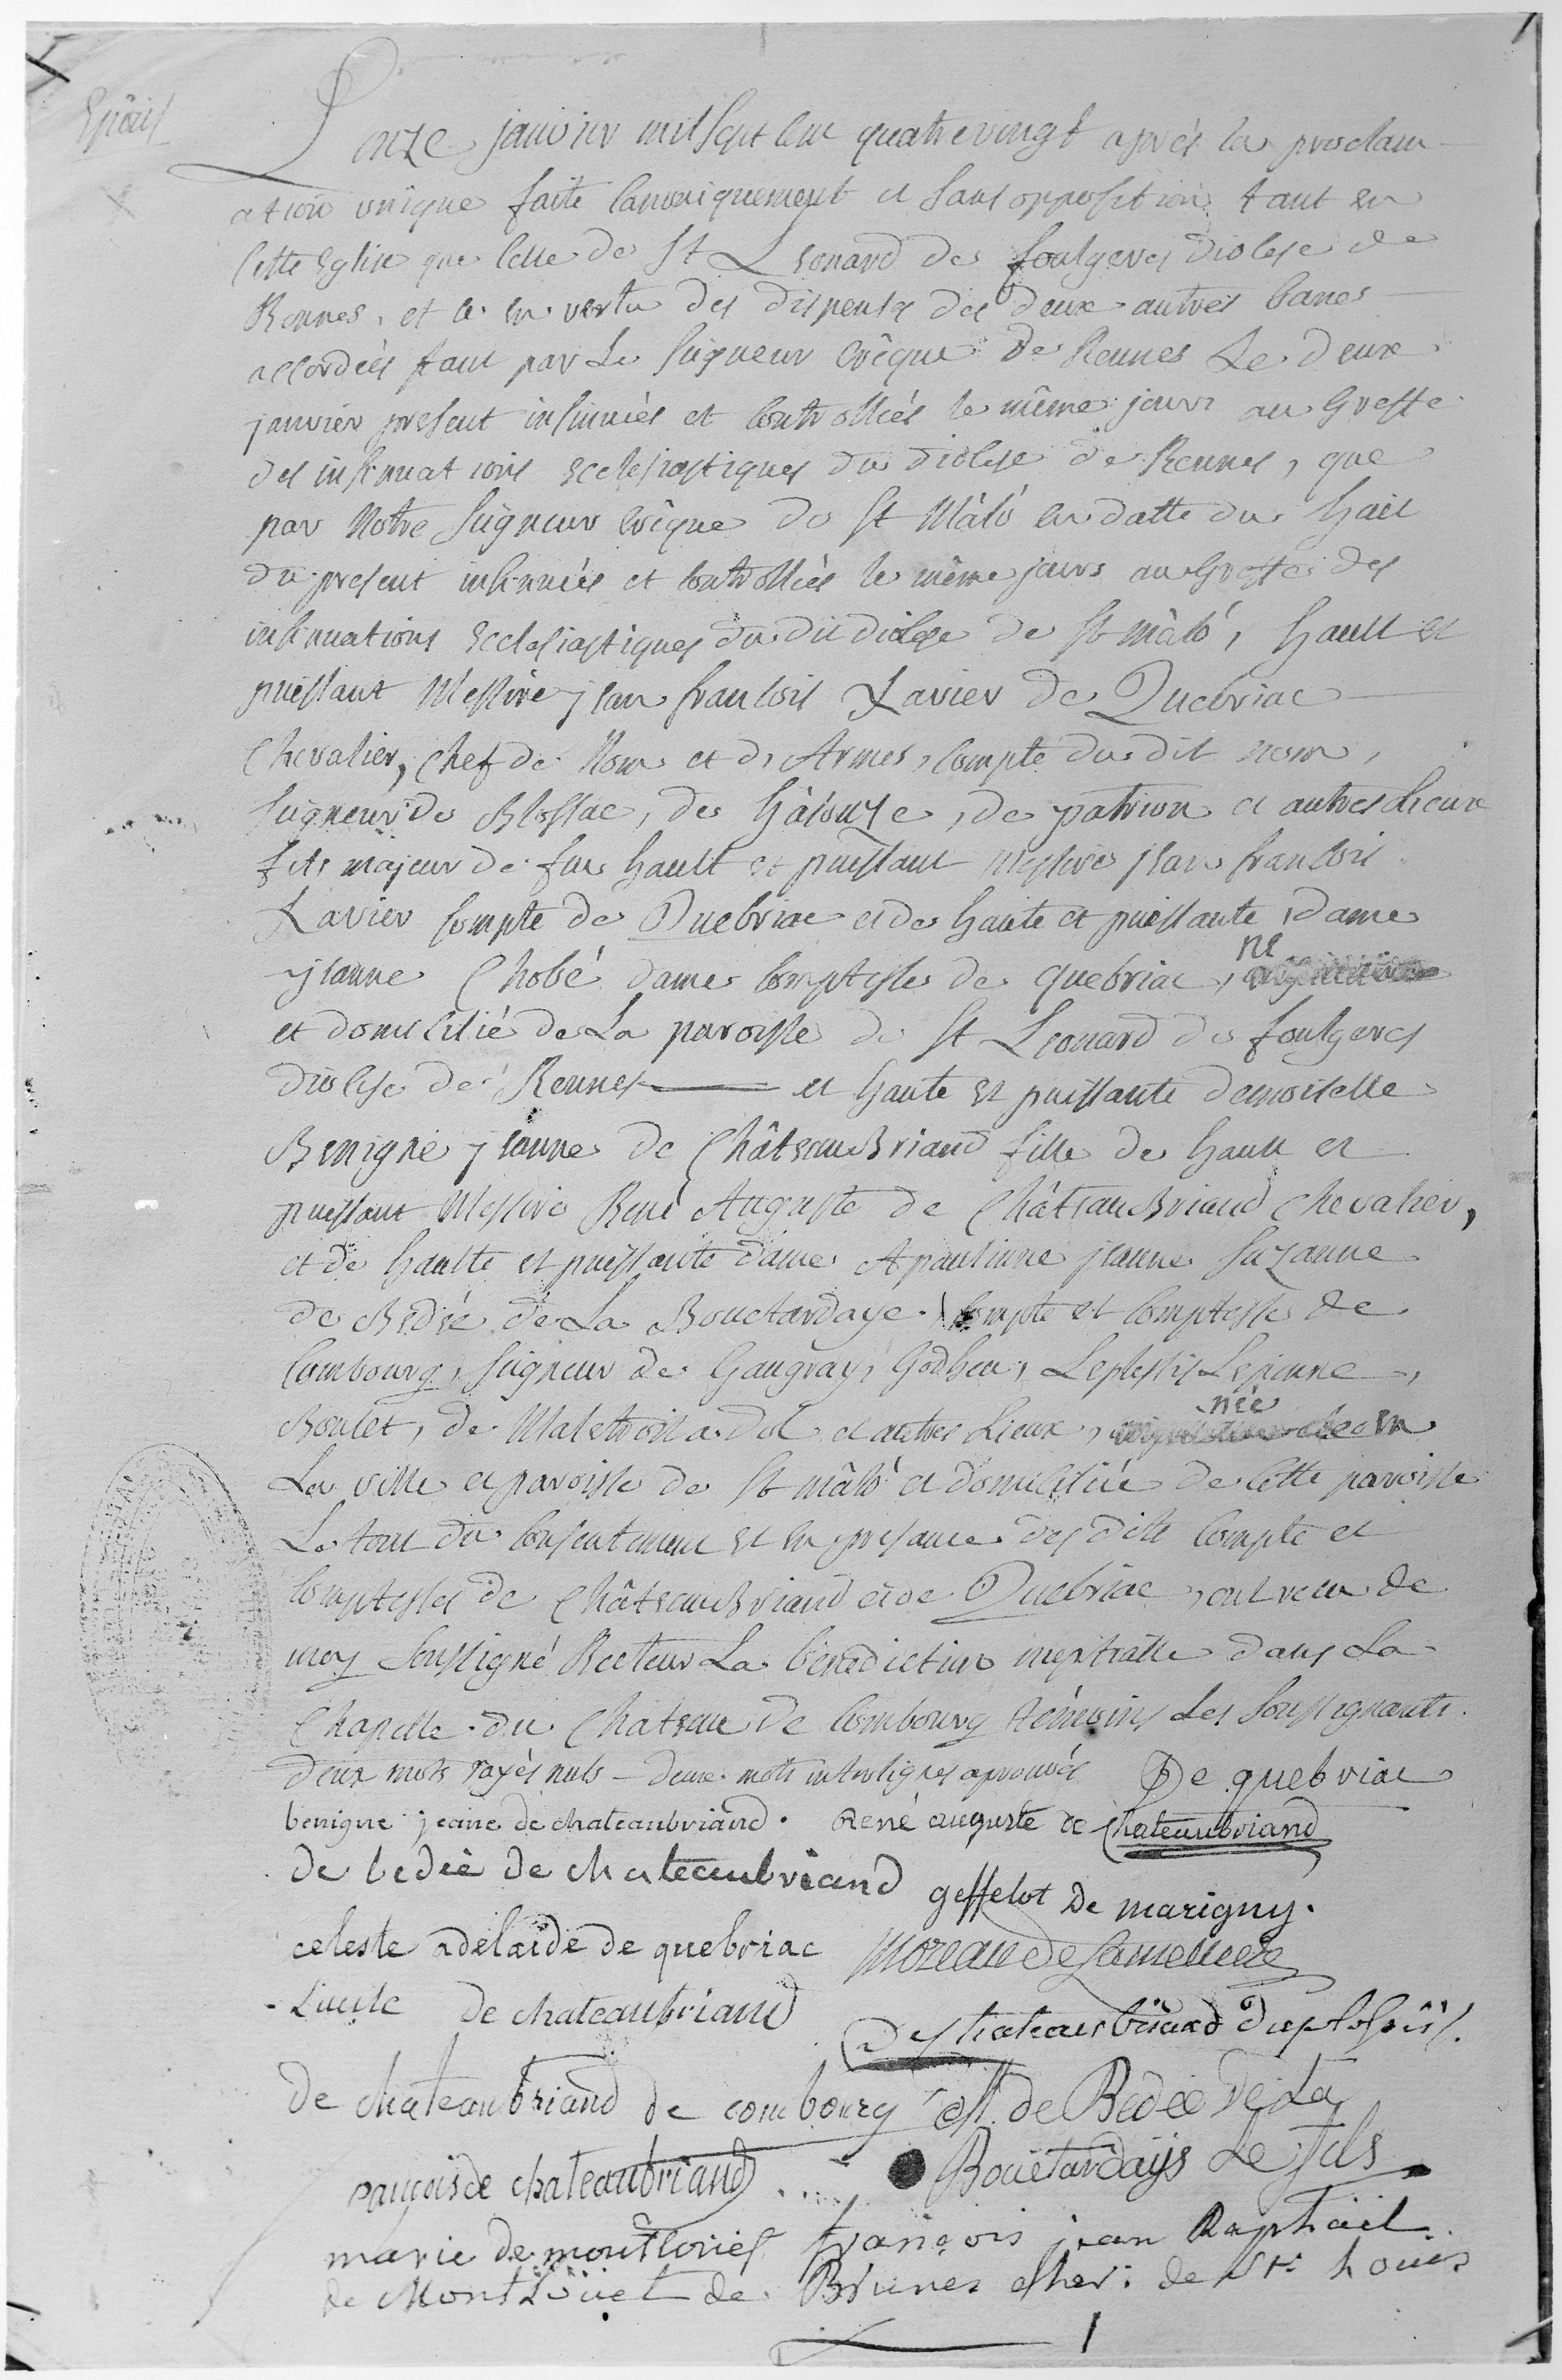 L'onze janvier mil sept cent quatrevingt après la proclam
ation unique faite canoniquement et sans opposition tant en
cette Eglise que celle de St Leonard de foulgeres diocese de
Rennes, et ce en vertu des dispense des deux autres banes
accordées tant par Le Seigneur evêque de Rennes Le deux
janvier present insinuées et controllées le même jour au Greffe
des insinuations Ecclesiastiques du diocese de Rennes, que
par Notre Seigneur evêque de St Mâlo en datte du huit
du present insinuées et controllées le même jours au Greffe des
insinuations Ecclesiastiques du dit diocese de St mâlo, hault et
puissant Messire jean francois Xavier de Quebriac
Chevalier, Chef de Nom et d'Armes, compte du dit nom,
seigneur de Blossac, de hâlouze, de patrion et autres Lieux
fils majeur de feu hault et puissant Messire jean francois
Xavier compte de Quebriac et de haute et puissante dame
jeanne Chobé dame comptesse de quebriac, né
et domicilié de La paroisse de St Leonard de foulgeres
diocese de Rennes et haute et puissante demoiselle
Benigne jeanne de ChâteauBriand fille de hault et
puissant Messire René Auguste de ChâteauBriand Chevalier,
et de haulte et puissante dame Apaulinne jeanne Suzanne
de Bedée de La Bouctardaye compte et comptesse de
Combourg, Seigneur de Gaugray, Godheu, Leplessis Lepinne,
Boulet, de Malestroit a dol et autres Lieux, née en
La ville et paroisse de St mâlo et domiciliée de cette paroisse
Le tout du consentement et en presance des dits compte et
comptesses de ChâteauBriand et de Quebriac, ont recu de
moy soussigné Recteur La bénédiction nuptialle dans La
Chapelle du Château de Combourg témoins Les soussignants
deux mots rayés nuls - deux mots interlignes aprouvés De quebriac
benigne jeanne de chateaubriand. René auguste de Chateaubriand
de bedée de chateaubriand geffelot De marigny.
celeste adelaïde de quebriac Moreau de Lamelliere
Lucile de chateaubriand De chateaubriand Duplessis.
De chateaubriand de combourg M. de Bedée de La
Boüetardays Le fils
françois de chateaubriand
marie de montlouët françois jean Raphaël
de Montlouet de Brunes cher. de St. Louis